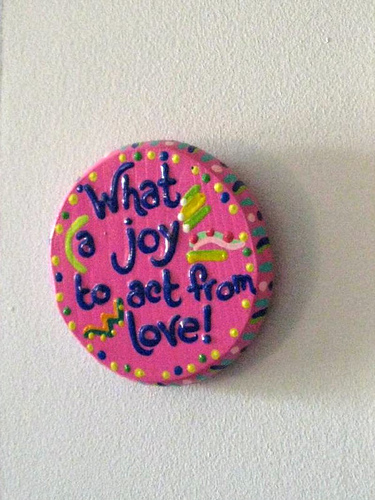 What
a joy
to act from
love!